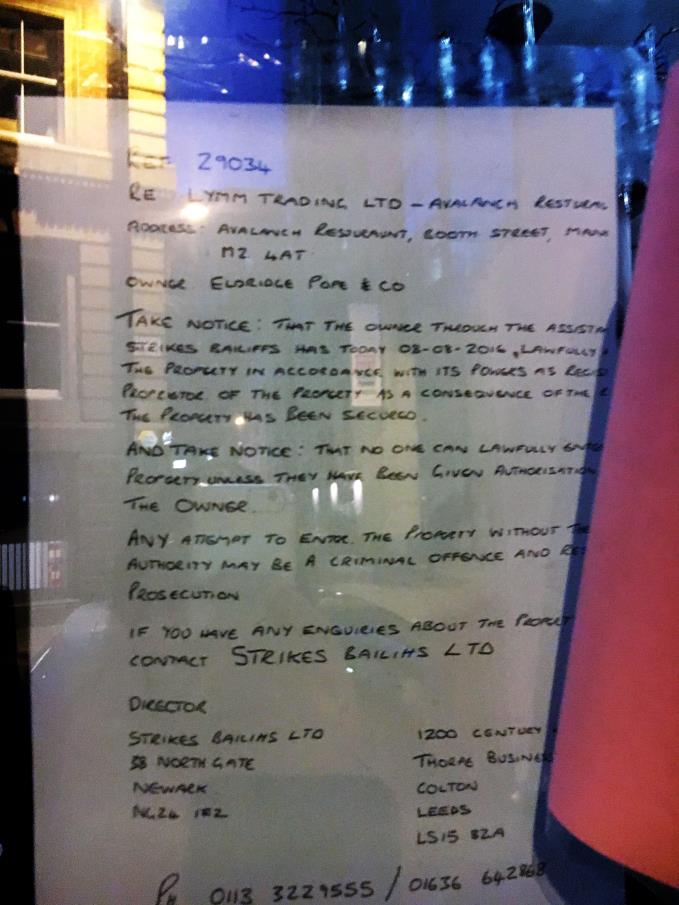 REF 29034
RE LYMM TRADING LTD - AVALANCH RESTURA
ADDRESS: AVALANCH RESTURAUNT, BOOTH STREET, MAN
M2 4AT
OWNER ELDRIDGE POPE & CO
TAKE NOTICE: THAT THE OWNER THROUGH THE ASSISTA
STRIKES BAILIFFS HAS TODAY 08-08-2016, LAWFULLY
THE PROPERTY IN ACCORDANCE WITH ITS POWERS AS REGIS
PROPRIETOR OF THE PROPERTY AS A CONSEQUENCE OF THE
THE PROPERTY HAS BEEN SECURED.
AND TAKE NOTICE: THAT NO ONE CAN LAWFULLY ENTE
PROPERTY UNLESS THEY HAVE BEEN GIVEN AUTHORISATION
THE OWNER.
ANY ATTEMPT TO ENTER THE PROPERTY WITHOUT THE
AUTHORITY MAY BE A CRIMINAL OFFENCE AND RES
PROSECUTION
IF YOU HAVE ANY ENQUIRIES ABOUT THE PROPERT
CONTACT STRIKES BAILIFFS LTD
DIRECTOR
STRIKES BAILIFFS LTD
58 NORTH GATE
NEWARK
NG24 1EZ
1200 CENTURY
THORPE BUSINES
COLTON
LEEDS
LS15 8ZA
PH 0113 3229555 / 01636 642868